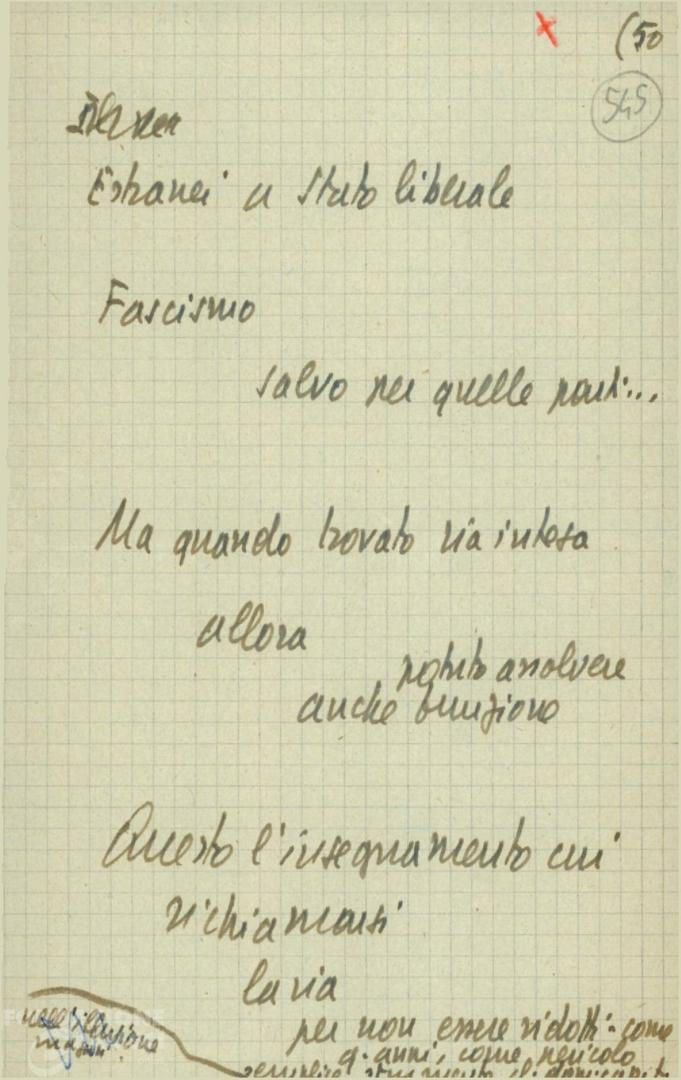 (50
545
Estranei a Stato liberale
Fascismo
salvo per quelle parti...
Ma quando trovato via intesa
allora
potuto assolvere
anche funzione
Questo l'insegnamento cui
richiamarsi
la via
per non essere ridotti - come
q. anni, come pericolo
semplice strumento d.